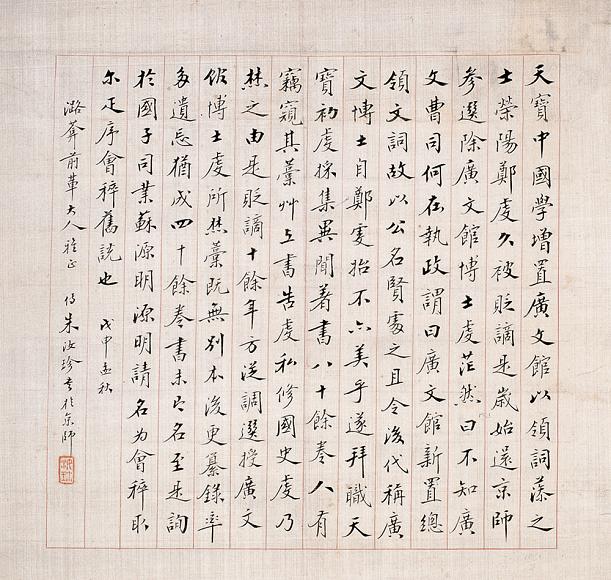 天寶中國學增置廣文館以領詞藻之
士榮陽鄭虔久被貶謫是歲始還京師
參選除廣文館博士虔茫然曰不知廣
文曹司何在執政謂曰廣文館新置總
領文詞故以公名賢處之且令後代稱廣
文博士自鄭虔始不亦美乎遂拜職天
寶初虔採集異聞著書八十餘卷人有
竊窺其藁草上書告虔私修國史虔乃
焚之由是貶謫十餘年方從調選授廣文
館博士虔所焚藁既無別本後更纂錄率
多遺忘猶成四十餘卷書未有名至是詢
於國子司業蘇源明源明請名為會稡取
尔疋序會稡舊說也 戊申孟秋
潞葊前輩大人雅正 侍朱汝珍書於京師